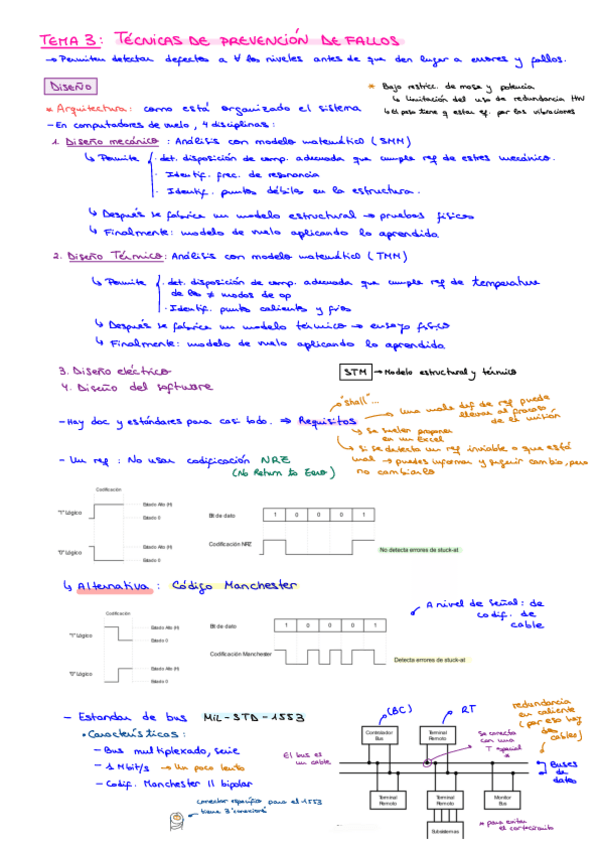 TEMA 3: TÉCNICAS DE PREVENCIÓN DE FALLOS
→ Permiten detectar defectos a ∀ los niveles antes de que den lugar a errores y fallos.
DISEÑO
* Bajo restricc. de masa y potencia
↳ limitación del uso de redundancia HW
↳ el peso tiene q estar ef. por las vibraciones
* Arquitectura: como está organizado el sistema
- En computadores de vuelo, 4 disciplinas:
1. Diseño mecánico: Análisis con modelo matemático (SMM)
↳ Permite · det. disposición de comp. adecuada que cumple req de estres mecánico.
· Identif. frec. de resonancia
· Identif. puntos débiles en la estructura.
↳ Después se fabrica un modelo estructural → pruebas físicas
↳ Finalmente: modelo de vuelo aplicando lo aprendido
2. Diseño Térmico: Análisis con modelo matemático (TMM)
↳ Permite · det. disposición de comp. adecuada que cumple req de temperature
de los ≠ modos de op
· Identif. puntos calientes y fríos
↳ Después se fabrica un modelo térmico → ensayo físico
↳ Finalmente: modelo de vuelo aplicando lo aprendido
3. Diseño eléctrico
4. Diseño del software
STM → Modelo estructural y térmico
- Hay doc y estándares para casi todo. ⇒ Requisitos
"shall"...
una mala def de req puede
llevar al fracaso
de la misión
↳ se suelen proponer
en un Excel
↳ Si se detecta un req inviable o que está
mal → puedes informar y seguir cambio, pero
no cambiarlo
- Un req: No usar codificación NRZ
(No Return to Zero)
Codificación
"1" Lógico
Estado Alto (H)
Estado 0
"0" Lógico
Estado Alto (H)
Estado 0
Bit de dato 1 0 0 0 1
Codificación NRZ
No detecta errores de stuck-at
↳ Alternativa: Código Manchester
A nivel de señal: de
codif. de
cable
Codificación
"1" Lógico
Estado Alto (H)
Estado 0
"0" Lógico
Estado Alto (H)
Estado 0
Bit de dato 1 0 0 0 1
Codificación Manchester
Detecta errores de stuck-at
- Estandar de bus MIL-STD-1553
• Características:
- Bus multiplexado, serie
- 1 Mbit/s → Un poco lento
- Codif. Manchester II bipolar
conector específico para el 1553
tiene 3 conexiones
(BC)
RT
Controlador
Bus
Terminal
Remoto
Se conecta
con una
T especial
redundancia
en caliente
(por eso hay
dos
cables)
El bus es
un cable
Buses
de
datos
Terminal
Remoto
Terminal
Remoto
Monitor
Bus
Subsistemas
* para evitar
el cortocircuito